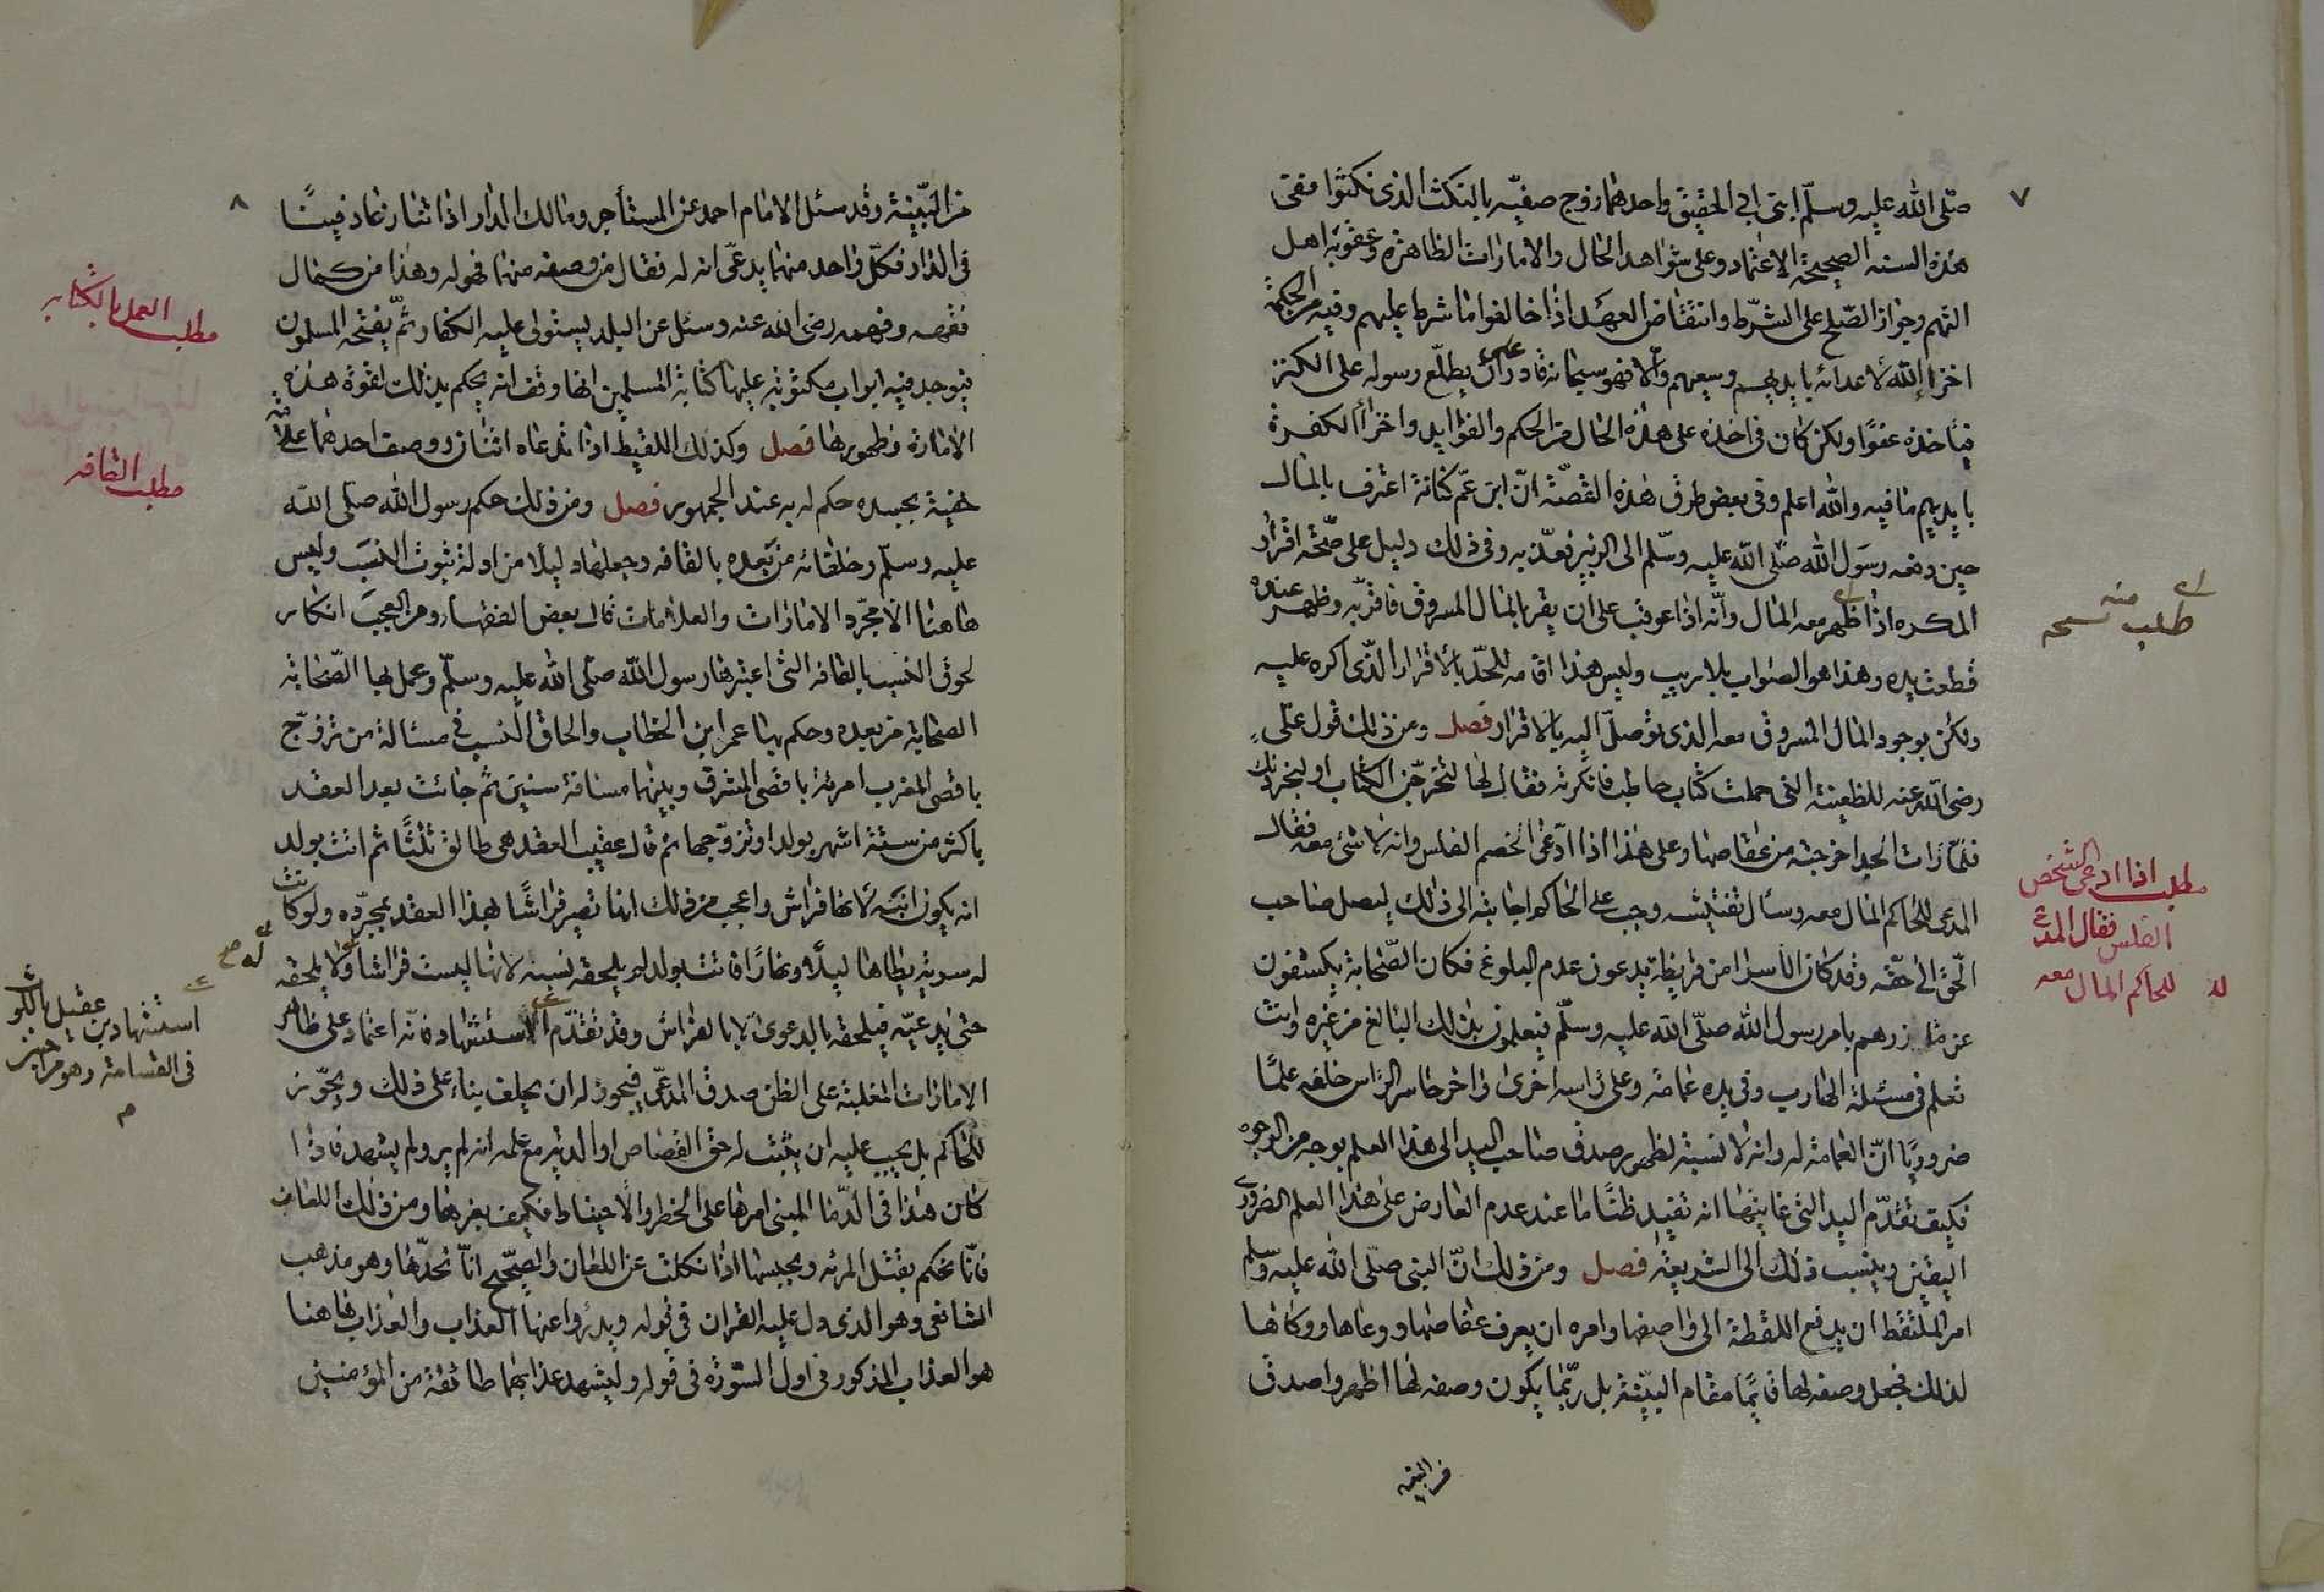 ٧
صلّى الله عليه وسلّم ابنى ابي الحقيق واحدهما زوج صفيّه بالنكث الذى نكثوا ففى
هذه السنه الصحيحة الاعتماد وعلى شواهد الحال والامارات الظاهره وعقوبة اهل
التهم وجواز الصّلح على الشّرط وانتقاض العهد اذا خالفوا ما شرط عليهم وفيه من الحكمة
اخزا الله لاعدائه بايديهم وسعيهم والّا فهو سبحانه قادر على ان يطلّع رسوله على الكنز
فياخذه عفوًا ولكن كان فى اخذه على هذه الحال من الحكم والفوايد واخزاأ الكفرة
بايديهم ما فيه والله اعلم وفى بعض طرق هذه القصّة انّ ابن عمّ كنانة اعترف بالمال
حين دفعه رسول الله صلّى الله عليه وسلّم الى الزبير فعذّبه وفى ذلك دليل على صحّة اقرار
المكره اذا ظهر معه المال وانّه اذا عوقب على ان يقر بالمال المسروق فاقرّ به وظهر عنده
قطعت يده وهذا هو الصواب بلا ريب وليس هذا اقامه للحدّ بالاقرار الّذى اكره عليه
ولكن بوجود المال المسروق معه الذى توصلّ اليه بالاقرار فصل ومن ذلك قول على
رضى الله عنه للظعينة التى حملت كتاب حاطب فانكرته فقال لها لتخرجّن الكتاب او لنجردنك
فلمّا رات الجد اخرجته من عقاصها وعلى هذا اذا ادّعى الخصم الفلس وانه لا شئ معه فقال
المدعى للحاكم المال معه وسأل تفتيشه وجب على الحاكم اجابته الى ذلك ليصل صاحب
الحقّ الى حقّه وقد كان الاسرا من قريظة يدعون عدم البلوغ فكان الصّحابة يكشفون
عن مآزرهم بامر رسول الله صلّى الله عليه وسلّم فيعلمون بذلك البالغ من غيره وانت
تعلم فى مسئلة الهارب وفى يده عمامة وعلى راسه اخرى واخر حاسر الرّاس خلفه علمًا
ضروريًا انّ العمامة له وانه لا نسبة لظهور صدق صاحب اليد الى هذا العلم بوجه من الوجوه
فكيف تقدّم اليد التى غايتها انه تفيد ظنًا ما عند عدم العارض على هذا العلم الضرورى
اليقين وينسب ذلك الى الشريعة فصل ومن ذلك انّ النبى صلّى الله عليه وسلم
امر الملتقط ان يدفع اللقطة الى واصفها وامره ان يعرف عفاصها ووعاها ووكاها
لذلك فجعل وصفه لها قايمًا مقام البيّنة بل ربّما يكون وصفه لها اظهر واصدق
من البينة
منه
طلب نسخه
مطلب اذا ادعى الشخص
الفلس فقال المدعى
للحاكم المال معه
٨
من البيّنة وقد سئل الامام احمد عن المستأجر ومالك الدار اذا تنازعا دفينًا
فى الدار فكلّ واحد منهما يدعّى انه له فقال من وصفه منهما فهو له وهذا من كمال
فقهه وفهمه رضى الله عنه وسئل عن البلد يستولى عليه الكفار ثمّ يفتحه المسلمون
فيوجد فيه ابواب مكتوبة عليها كتابة المسلمين انها وقف انه يحكم بذلك لقوة هذه
الامارة وظهورها فصل وكذلك اللقيط اذا تدعاه اثنان ووصف احدهما علامة
خفية بجسده حكم له به عند الجمهور فصل ومن ذلك حكم رسول الله صلّى الله
عليه وسلّم وخلفائه من بعده بالقافه وجعلها دليلًا من ادلة ثبوت النسب وليس
هاهنا الا مجّرد الامارات والعلامات قال بعض الفقهاء ومن العجب انكار
لحوق النسب بالقافه التى اعتبرها رسول الله صلّى الله عليه وسلّم وعمل بها الصّحابة
الصحابة من بعده وحكم بها عمر ابن الخطاب والحاق النسب فى مسئالة من تزوّج
باقصى المغرب امرئة باقصى المشرق وبينهما مسافة سنين ثم جائت بعد العقد
باكثر من ستة اشهر بولد او تزوّجها ثم قال عقيب العقد هى طالق ثلثًا ثم اتت بولد
انه يكون ابنه لانها فراش واعجب من ذلك انها تصير فراشًا بهذا العقد بمجرّده ولو كانت
له سرية يطاها ليلًا ونهارًا فاتت بولد لم يلحقه نسبه لانها ليست فراشا ولا يلحقه
حتى يدعيّه فيلحقه بالدعوى لا بالفراش وقد تقدّم استشهاد فانّه اعتماد على ظاهر
الامارات المغلبة على الظن صدق المدعّى فيجوز له ان يحلف بناء على ذلك ويجوّز
للحاكم بل يجب عليه ان يثبت له حق القصاص او الدية مع علمه انه لم ير ولم يشهد فاذا
كان هذا فى الدّما المبنى امرها على الخطر والاحتياط فكيف بغيرها ومن ذلك اللعان
فانّا نحكم بقتل المرئه وبحبسها اذا نكلت عن اللعان والصحّيح انّا نحدّها وهو مذهب
الشافعى وهو الذى دل عليه القران فى قوله ويدرؤا عنها العذاب والعذاب هاهنا
هو العذاب المذكور فى اول السّورة فى قوله وليشهد عذابهما طائفة من المؤمنين
مطلب العمل بالكتابه
مطلب القافه
له صح
استشهاد بن عقيل باللوث
فى القسامة وهو من احسن